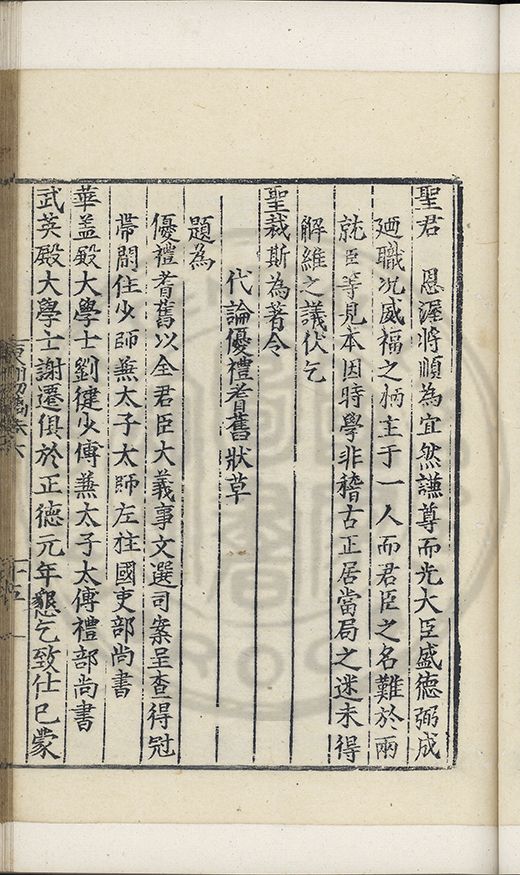 聖君　恩渥將順為宜然謙尊而光大臣盛德弼成
廼職况威福之柄主于一人而君臣之名難於兩
就臣等見本因時學非稽古正居當局之迷未得
解維之議伏乞
聖裁斯為著令
代論優禮耆舊狀草
題為
優禮耆舊以全君臣大義事文選司案呈查得冠
帶閑住少師兼太子太師左柱國吏部尚書
華盖殿大學士劉健少傅兼太子太傅禮部尚書
武英殿大學士謝遷俱於正德元年懇乞致仕已蒙